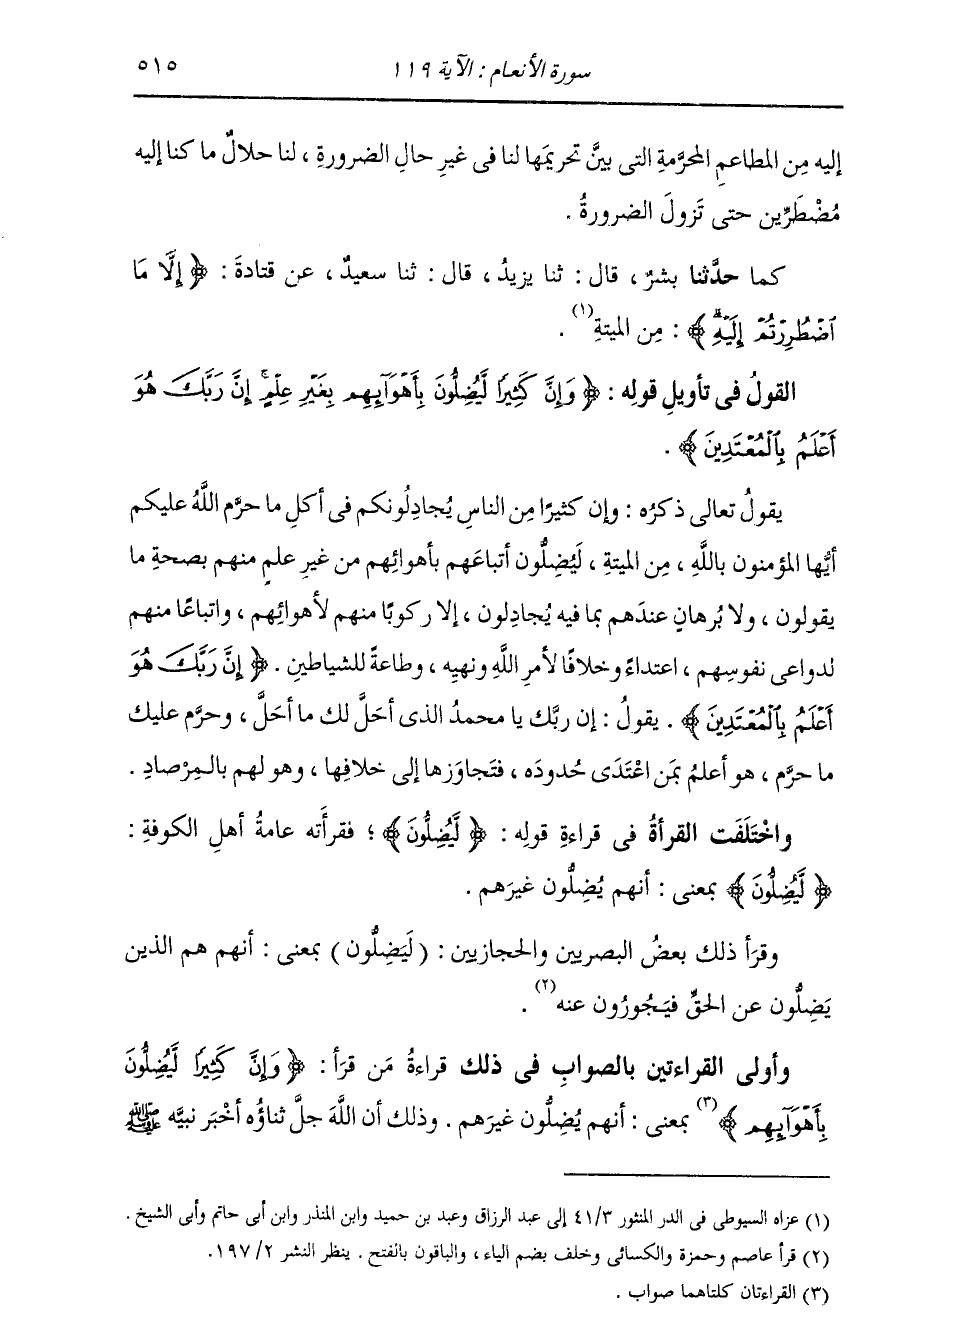 سورة الأنعام : الآية ١١٩ ٥١٥
إليه مِن المطاعمِ المحرَّمةِ التى بيَّن تحريمَها لنا فى غيرِ حالِ الضرورةِ ، لنا حلالٌ ما كنا إليه
مُضْطَرِّين حتى تَزولَ الضرورةُ .
كما حدَّثنا بشرٌ ، قال : ثنا يزيدُ ، قال : ثنا سعيدٌ ، عن قتادةَ : ﴿ إِلَّا مَا
ٱضْطُرِرْتُمْ إِلَيْهِۗ ﴾ : مِن الميتةِ (١) .
القولُ فى تأويلِ قولِه : ﴿ وَإِنَّ كَثِيرًا لَّيُضِلُّونَ بِأَهْوَآئِهِم بِغَيْرِ عِلْمٍۚ إِنَّ رَبَّكَ هُوَ
أَعْلَمُ بِٱلْمُعْتَدِينَ ﴾ .
يقولُ تعالى ذكرُه : وإن كثيرًا مِن الناسِ يُجادِلُونكم فى أكلِ ما حرَّم اللَّهُ عليكم
أيُّها المؤمنون باللَّهِ ، مِن الميتةِ ، لَيُضِلُّون أتباعَهم بأهوائِهم من غيرِ علمٍ منهم بصحةِ ما
يقولون ، ولا بُرهانٍ عندَهم بما فيه يُجادِلون ، إلا ركوبًا منهم لأهوائِهم ، واتباعًا منهم
لدواعى نفوسِهم ، اعتداءً وخلافًا لأمرِ اللَّهِ ونهيِه ، وطاعةً للشياطينِ . ﴿ إِنَّ رَبَّكَ هُوَ
أَعْلَمُ بِٱلْمُعْتَدِينَ ﴾ . يقولُ : إن ربَّك يا محمدُ الذى أحَلَّ لك ما أحَلَّ ، وحرَّم عليك
ما حرَّم ، هو أعلمُ بمَن اعْتَدَى حُدودَه ، فتَجاوَزها إلى خلافِها ، وهو لهم بالـمِرْصادِ .
واخْتَلَفَت القرأةُ فى قراءةِ قولِه : ﴿ لَّيُضِلُّونَ ﴾ ؛ فقرأَته عامةُ أهلِ الكوفةِ :
﴿ لَّيُضِلُّونَ ﴾ بمعنى : أنهم يُضِلُّون غيرَهم .
وقرَأ ذلك بعضُ البصريين والحجازيين : ( لَيَضِلُّون ) بمعنى : أنهم هم الذين
يَضِلُّون عن الحقِّ فيَجُورُون عنه (٢) .
وأولى القراءتين بالصوابِ فى ذلك قراءةُ مَن قرَأ : ﴿ وَإِنَّ كَثِيرًا لَّيُضِلُّونَ
بِأَهْوَآئِهِم ﴾ (٣) بمعنى : أنهم يُضِلُّون غيرَهم . وذلك أن اللَّهَ جلَّ ثناؤُه أخْبَر نبيَّه ﷺ
(١) عزاه السيوطى فى الدر المنثور ٤١/٣ إلى عبد الرزاق وعبد بن حميد وابن المنذر وابن أبى حاتم وأبى الشيخ .
(٢) قرأ عاصم وحمزة والكسائى وخلف بضم الياء ، والباقون بالفتح . ينظر النشر ١٩٧/٢.
(٣) القراءتان كلتاهما صواب .